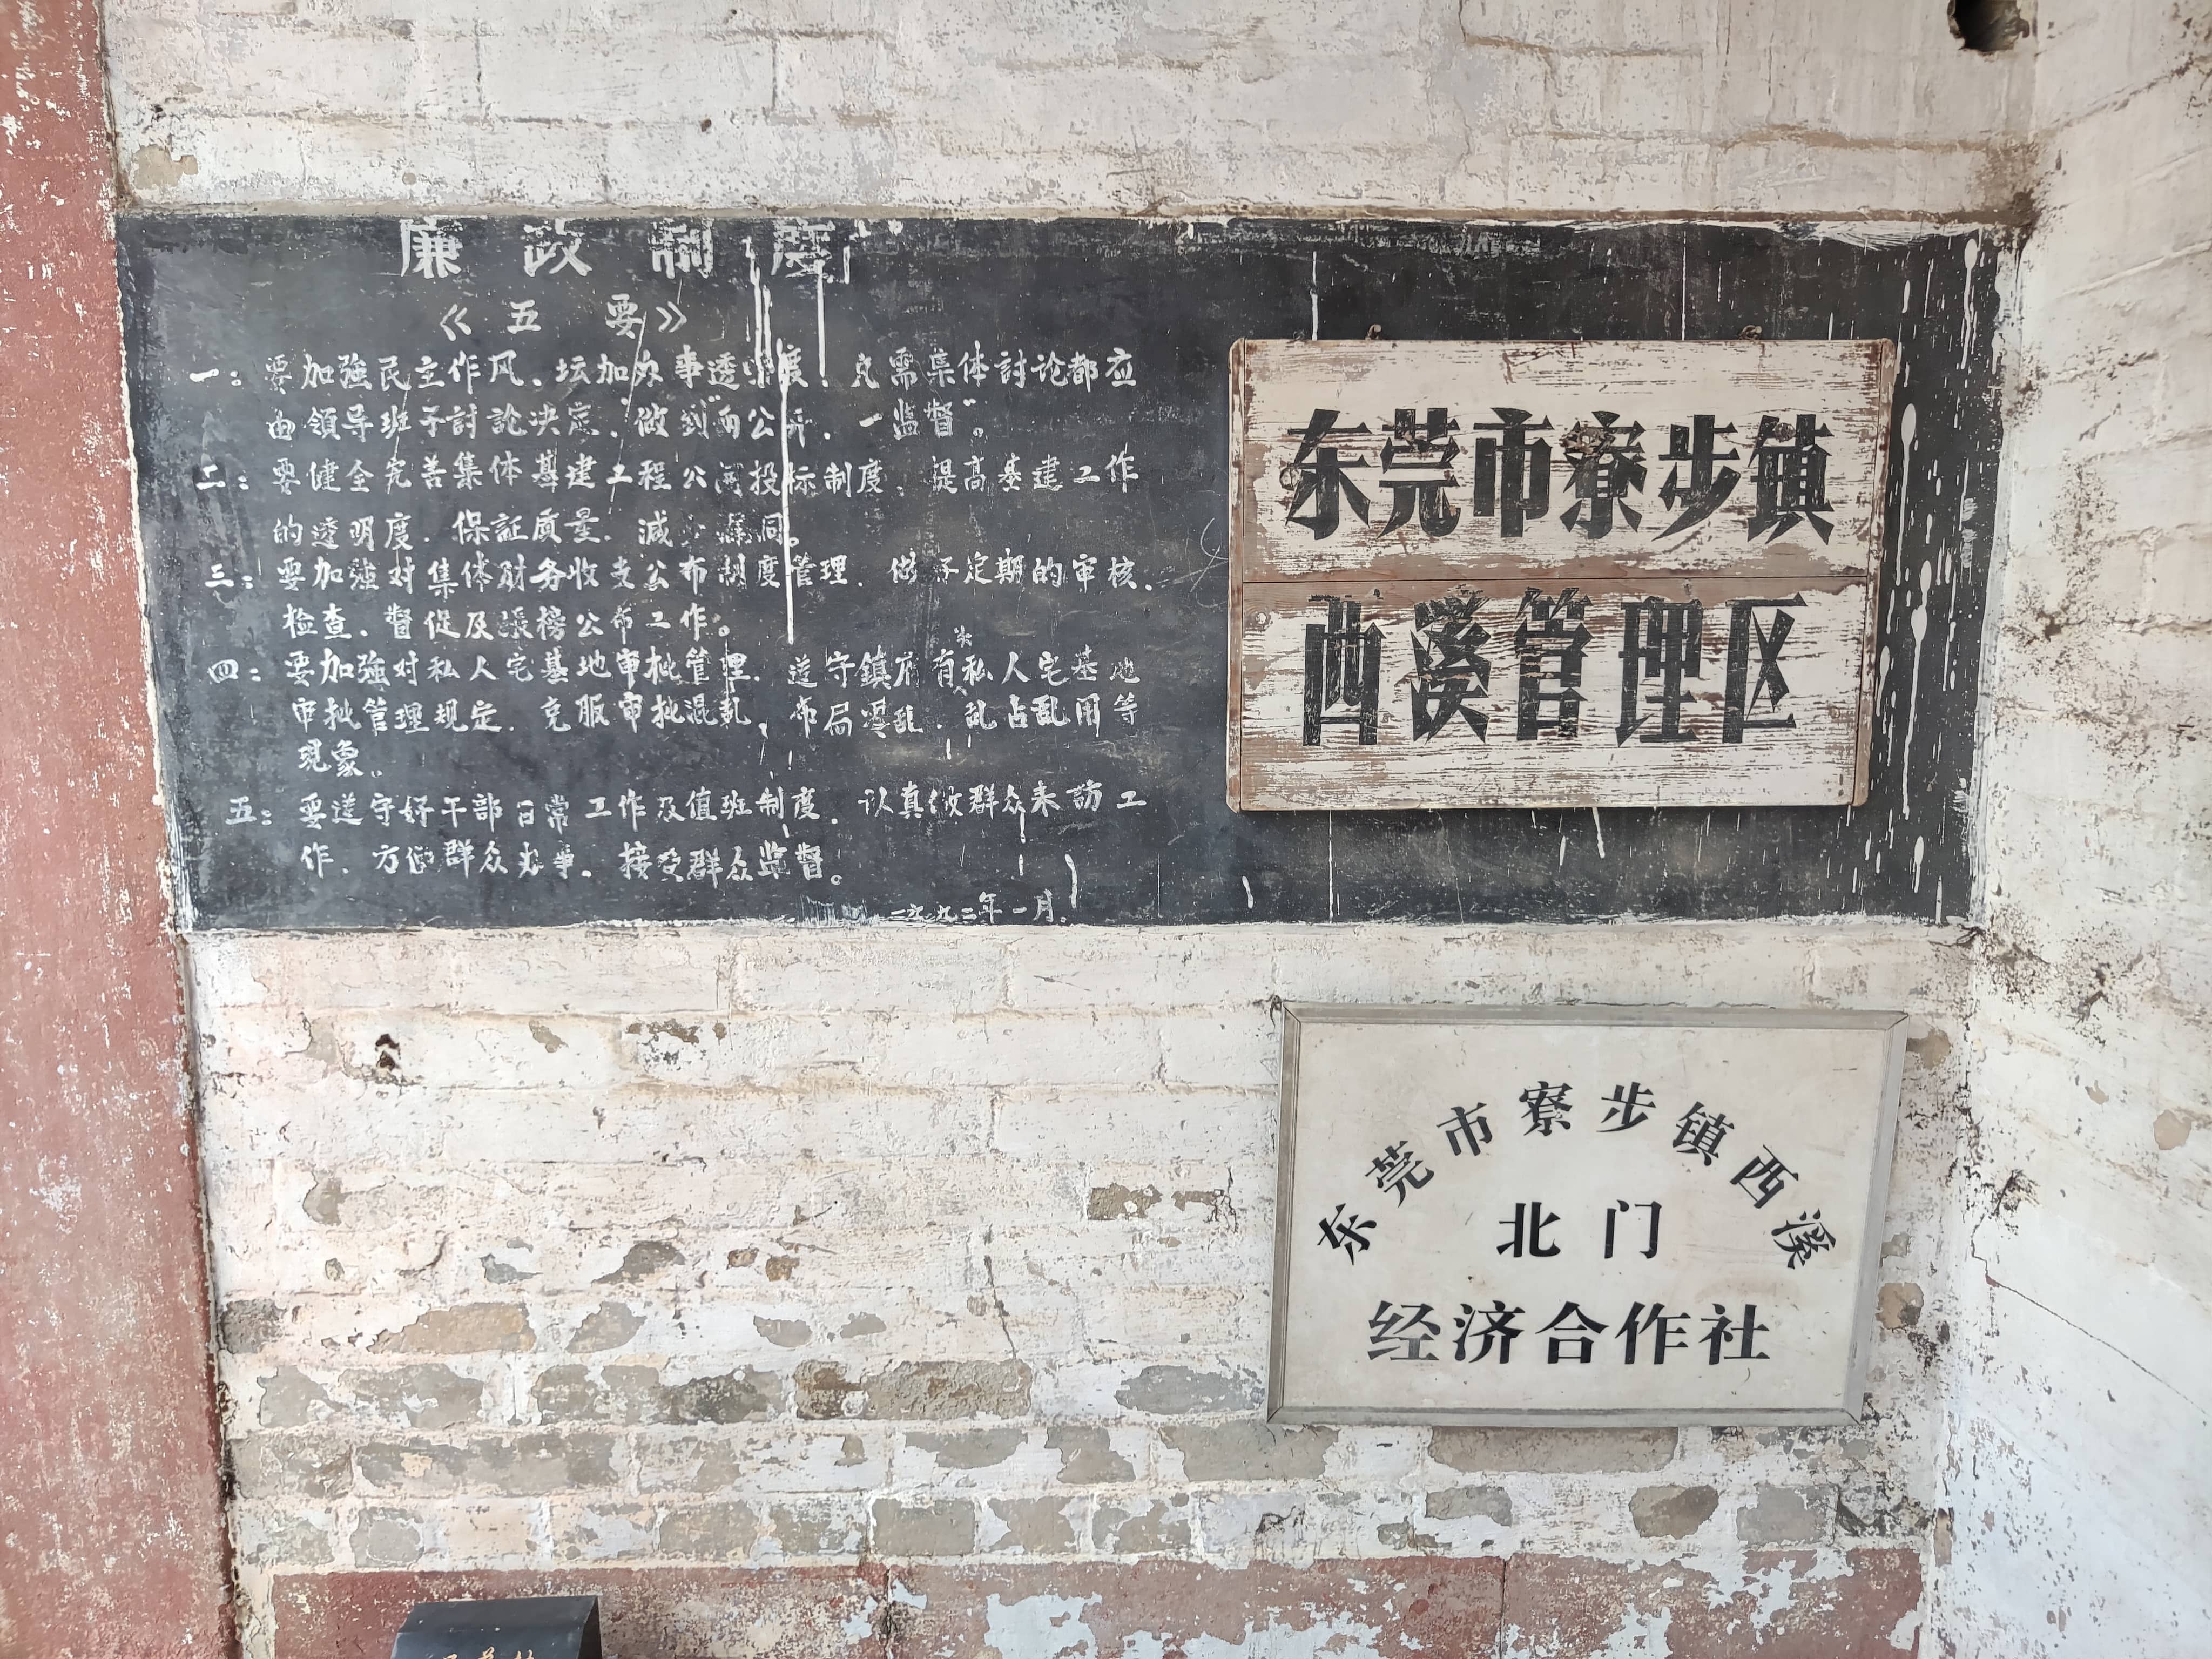 廉政制度
《五要》
一：要加強民主作风、坛加办事透明度、凡需集体討论都应
由領导班子討論决定、做到"两公开、一监督"。
二：要健全完善集体基建工程公開投标制度、提高基建工作
的透明度、保証质量、減少漏洞。
三：要加強对集体財务收支公布制度管理、做好定期的审核、
检查、督促及張榜公布工作。
四：要加強对私人宅基地审批管理、遵守鎮府有关私人宅基地
审批管理规定、克服审批混乱、布局零乱、乱占乱用等
現象。
五：要遵守好干部日常工作及值班制度、认真做群众来訪工
作、方便群众办事、接受群众监督。
一九九二年一月
东莞市寮步镇
西溪管理区
东莞市寮步镇西溪
北门
经济合作社